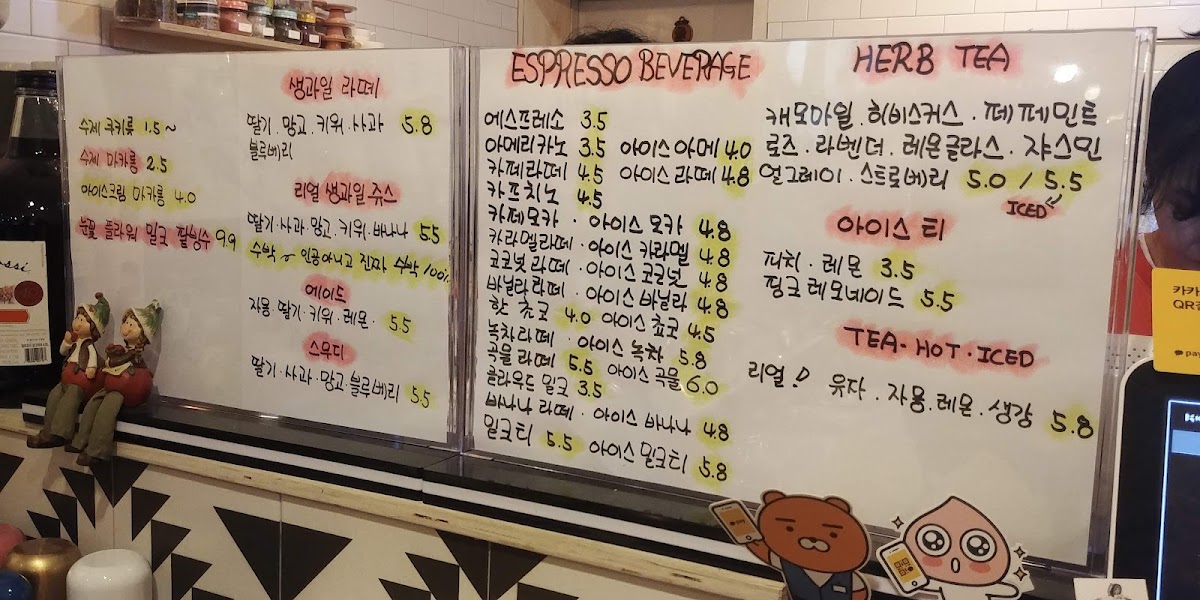 수제 쿠키류 1.5~
수제 마카롱 2.5
아이스크림 마카롱 4.0
눈꽃 플라워 밀크 팥빙수 9.9
생과일 라떼
딸기.망고.키위.사과 5.8
블루베리
리얼 생과일쥬스
딸기.사과.망고.키위.바나나 5.5
수박~ 인공아니고 진짜 수박100%
에이드
자몽.딸기.키위.레몬. 5.5
스무디
딸기.사과.망고.블루베리 5.5
ESPRESSO BEVERAGE
에스프레소 3.5
아메리카노 3.5 아이스아메 4.0
카페라떼 4.5 아이스라떼 4.8
카프치노 4.5
카페모카 · 아이스 모카 4.8
카라멜라떼 · 아이스 카라멜 4.8
코코넛라떼 · 아이스 코코넛 4.8
바닐라라떼 · 아이스 바닐라 4.8
핫 쵸코 4.0 아이스 쵸코 4.5
녹차라떼 · 아이스 녹차 5.8
곡물라떼 5.5 아이스 곡물 6.0
클라우드 밀크 3.5
바나나라떼 · 아이스 바나나 4.8
밀크티 5.5 아이스밀크티 5.8
HERB TEA
캐모마일.히비스커스.페페민트
로즈.라벤더.레몬글라스.쟈스민
얼그레이.스트로베리 5.0 / 5.5
ICED
아이스 티
피치.레몬 3.5
핑크레모네이드 5.5
TEA·HOT·ICED
리얼! 유자.자몽.레몬.생강 5.8
카카
QR
pay